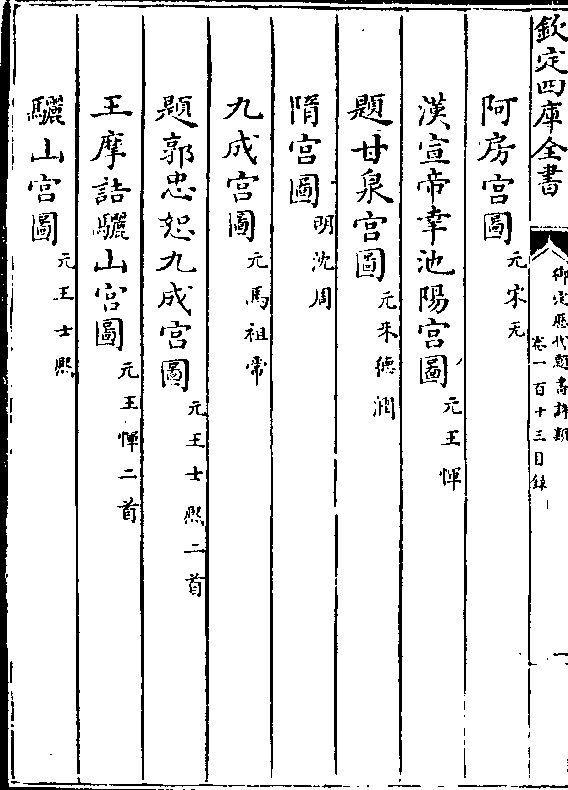 欽定四庫全書
御定歷代題畫詩類
卷一百十三目錄
一
阿房宮圖 元宋无
漢宣帝幸池陽宮圖 元王惲
題甘泉宮圖 元朱德潤
隋宮圖 明沈周
九成宮圖 元馬祖常
題郭忠恕九成宮圖 元王士熙二首
王摩詰驪山宮圖 元王惲二首
驪山宮圖 元王士熙